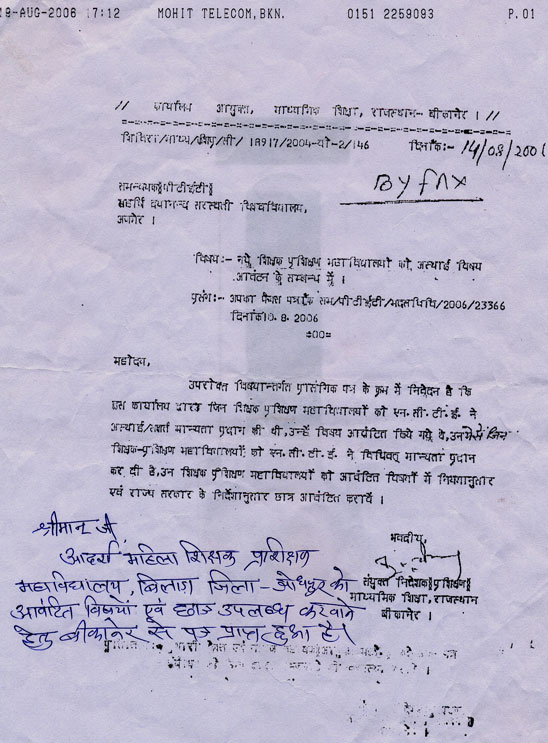 19-AUG-2006 17:12 MOHIT TELECOM,BKN. 0151 2259093 P.01
// कार्यालय आयुक्त, माध्यमिक शिक्षा, राजस्थान- बीकानेर । //
शिविरा/माध्य/ 18917/2004-यो-2/146 दिनांक:- 14/08/200
By fax
समन्वयक§पीटीईटी§
महर्षि दयानन्द सरस्वती विश्वविद्यालय,
अजमेर ।
विषय:- नये शिक्षक प्रशिक्षण महाविद्यालयों को, अस्थाई विषय
आवंटन के सम्बन्ध में ।
प्रसंग:- आपका फैक्स पत्रांक सम/पीटीईटी/मदसविवि/2006/23366
दिनांक10.8.2006
=00=
महोदय,
उपरोक्त विषयान्तर्गत प्रासंगिक पत्र के क्रम में निवेदन है कि
इस कार्यालय द्वारा जिन शिक्षक प्रशिक्षण महाविद्यालयों को एन.सी.टी.ई. ने
अस्थाई/सशर्त मान्यता प्रदान की थी,उन्हें विषय आवंटित किये गये थे,उनमेसे जिन
शिक्षक-प्रशिक्षण महाविद्यालयों को एन.सी.टी.ई. ने विधिवत् मान्यता प्रदान
कर दी है,उन शिक्षक प्रशिक्षण महाविद्यालयों को आवंटित विषयों में नियमानुसार
एवं राज्य सरकार के निर्देशानुसार छात्र आवंटित करावें ।
भवदीय,
संयुक्त निदेशक§प्रशिक्षण§
माध्यमिक शिक्षा,राजस्थान
बीकानेर ।
श्रीमान जी
आदर्श महिला शिक्षक प्रशिक्षक
महाविद्यालय, बिलाड़ा जिला- जोधपुर को
आवंटित विषयों एवं छात्र उपलब्ध करवाने
हेतु बीकानेर से पत्र प्राप्त हुआ है।